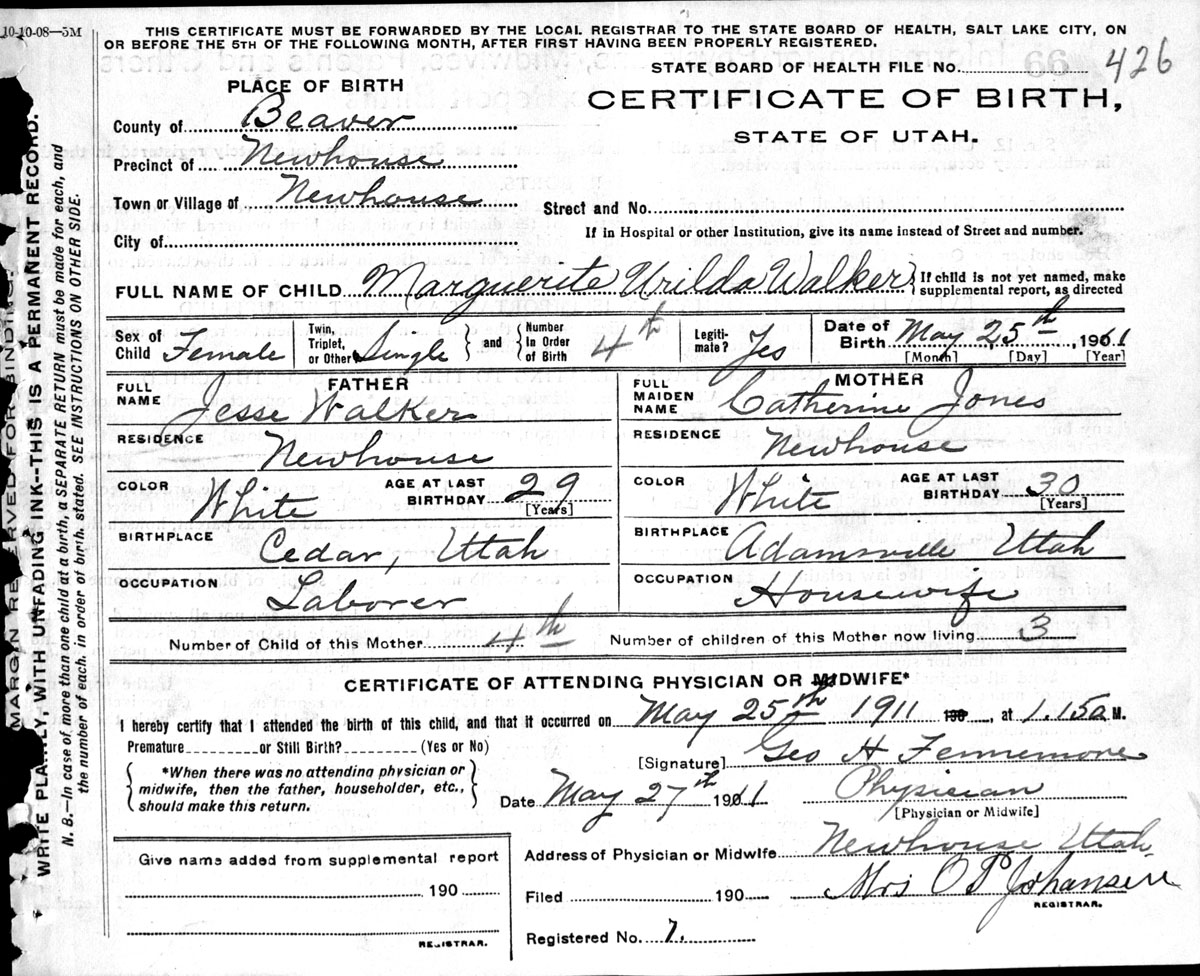 10-10-08—5M
THIS CERTIFICATE MUST BE FORWARDED BY THE LOCAL REGISTRAR TO THE STATE BOARD OF HEALTH, SALT LAKE CITY, ON
OR BEFORE THE 5TH OF THE FOLLOWING MONTH, AFTER FIRST HAVING BEEN PROPERLY REGISTERED.
STATE BOARD OF HEALTH FILE No. 426
PLACE OF BIRTH
CERTIFICATE OF BIRTH,
STATE OF UTAH.
County of Beaver
Precinct of Newhouse
Town or Village of Newhouse
Street and No.
City of
If in Hospital or other Institution, give its name instead of Street and number.
FULL NAME OF CHILD Marguerite Urilda Walker { If child is not yet named, make
supplemental report, as directed
Sex of Child Female Twin, Triplet, or Other Single } and { Number In Order of Birth 4th Legiti-mate? Yes Date of Birth May 25th, 1911
[Month] [Day] [Year]
FATHER
FULL NAME Jesse Walker
RESIDENCE Newhouse
COLOR White AGE AT LAST BIRTHDAY 29
[Years]
BIRTHPLACE Cedar, Utah
OCCUPATION Laborer
MOTHER
FULL MAIDEN NAME Catherine Jones
RESIDENCE Newhouse
COLOR White AGE AT LAST BIRTHDAY 30
[Years]
BIRTHPLACE Adamsville Utah
OCCUPATION Housewife
Number of Child of this Mother 4th Number of children of this Mother now living 3
CERTIFICATE OF ATTENDING PHYSICIAN OR MIDWIFE*
I hereby certify that I attended the birth of this child, and that it occurred on May 25th 1911 190 , at 1.15a M.
Premature or Still Birth? (Yes or No)
[Signature] Geo H Fennemore
{ *When there was no attending physician or
midwife, then the father, householder, etc.,
should make this return. }
Date May 27th 1911 Physician
[Physician or Midwife]
Give name added from supplemental report
190
REGISTRAR.
Address of Physician or Midwife Newhouse Utah
Filed 190 Mrs O P Johansen
REGISTRAR.
Registered No. 7.
MARGIN RESERVED FOR BINDING.
WRITE PLAINLY WITH UNFADING INK—THIS IS A PERMANENT RECORD.
N. B.—In case of more than one child at a birth, a SEPARATE RETURN must be made for each, and
the number of each, in order of birth, stated. SEE INSTRUCTIONS ON OTHER SIDE.